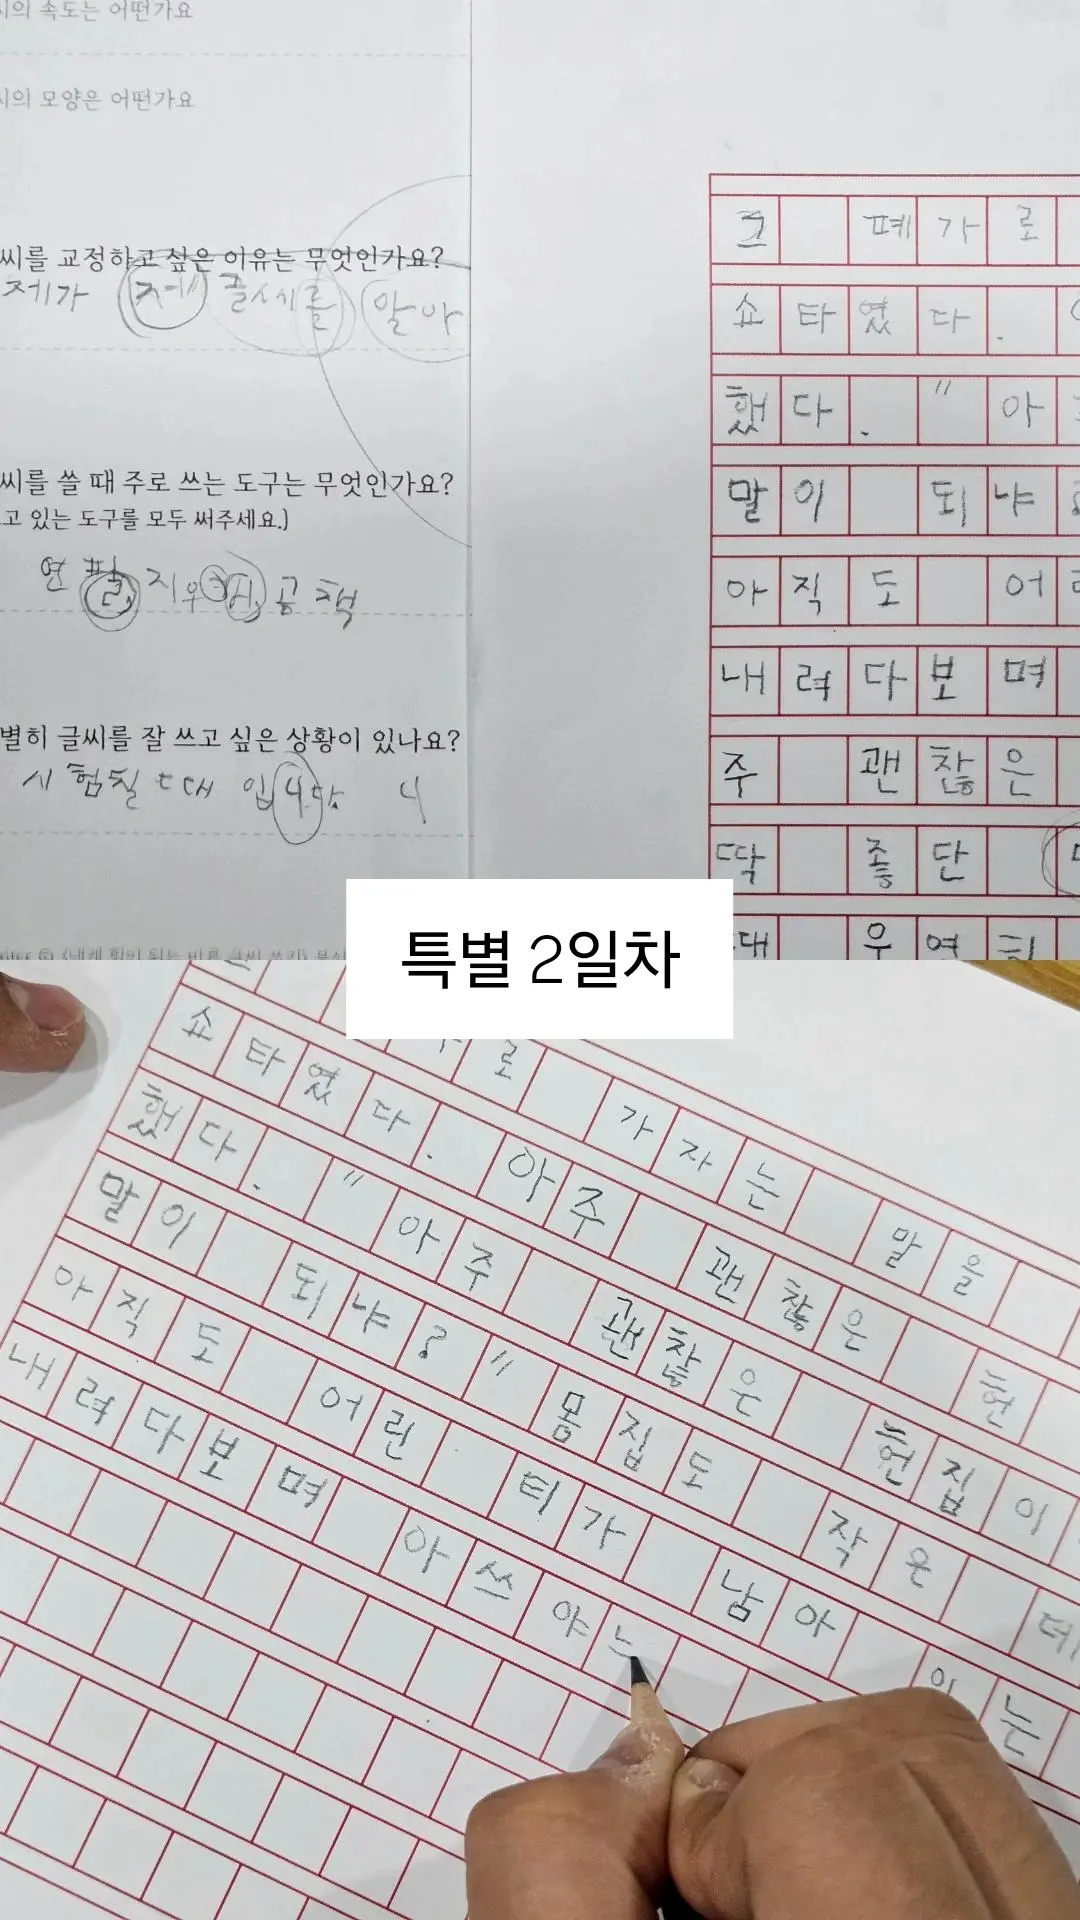 씨의 속도는 어떤가요
씨의 모양은 어떤가요
씨를 교정하고 싶은 이유는 무엇인가요?
제가 제 글시체를 알아
씨를 쓸 때 주로 쓰는 도구는 무엇인가요?
고 있는 도구를 모두 써주세요.)
연필, 지우개, 공책
별히 글씨를 잘 쓰고 싶은 상황이 있나요?
시험칠 때 입니다. 니
그 폐가로
쇼타였다.
했다. "아
말이 되냐
아직도 어
내려다보며
주 괜찮은
딱 좋단
우연히
특별 2일차
로 가자는 말을
쇼타였다. 아주 괜찮은 헌
했다. "아주 괜찮은 헌집이
말이 되냐?" 몸집도 작은데
아직도 어린 티가 남아 있는
내려다보며 아쓰야는